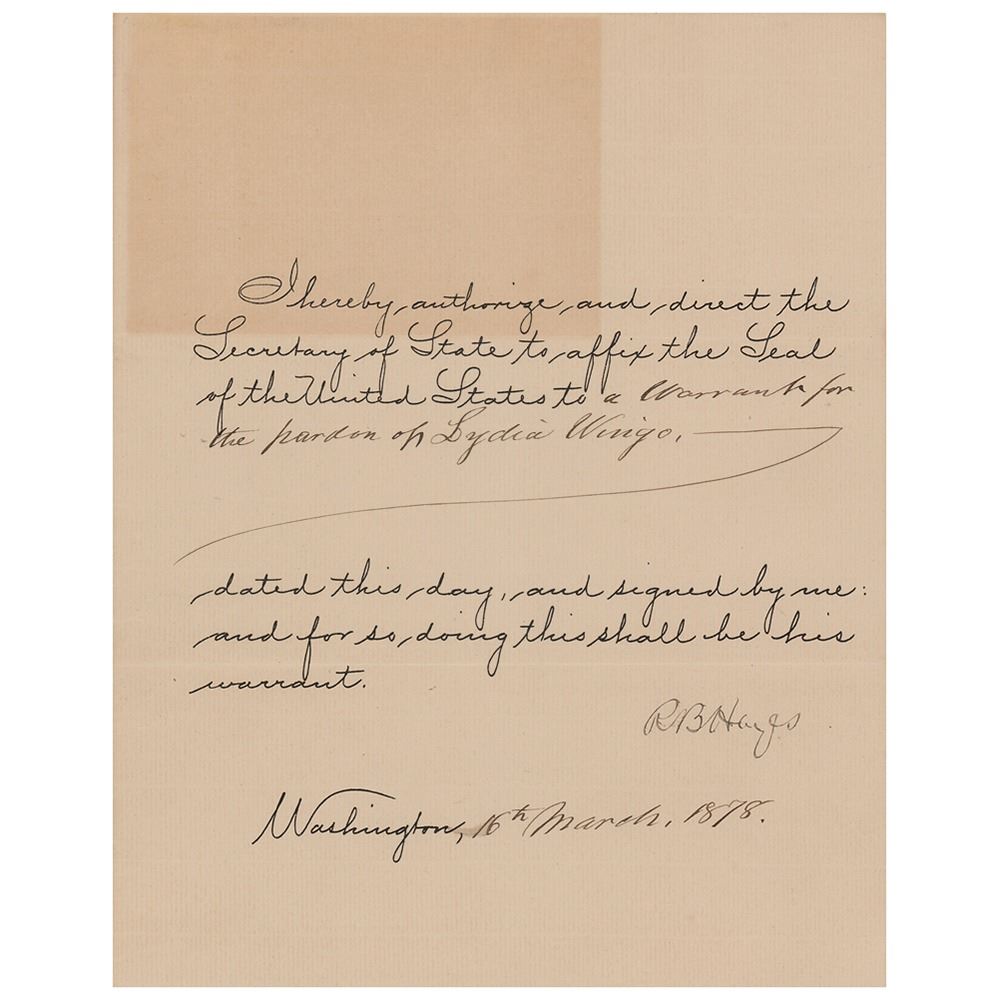 I hereby authorize and direct the
Secretary of State to affix the Seal
of the United States to a Warrant for
the pardon of Lydia Wingo.
dated this day, and signed by me:
and for so doing this shall be his
warrant.
R B Hayes
Washington, 16th March, 1878.